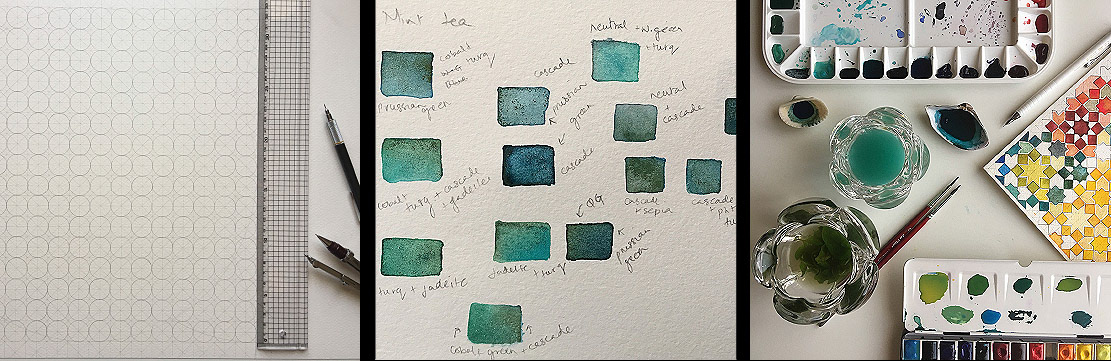 Mint tea
cobalt
turq
Prussian
green
cobalt
turq + cascade
+ jadeite
turq + jadeite
cascade
prussian
green
cascade
jadeite
+ turq
prussian
green
cobalt green + cascade
neutral + w. green
+ turq
neutral
+
cascade
cascade
+ sepia
cascade